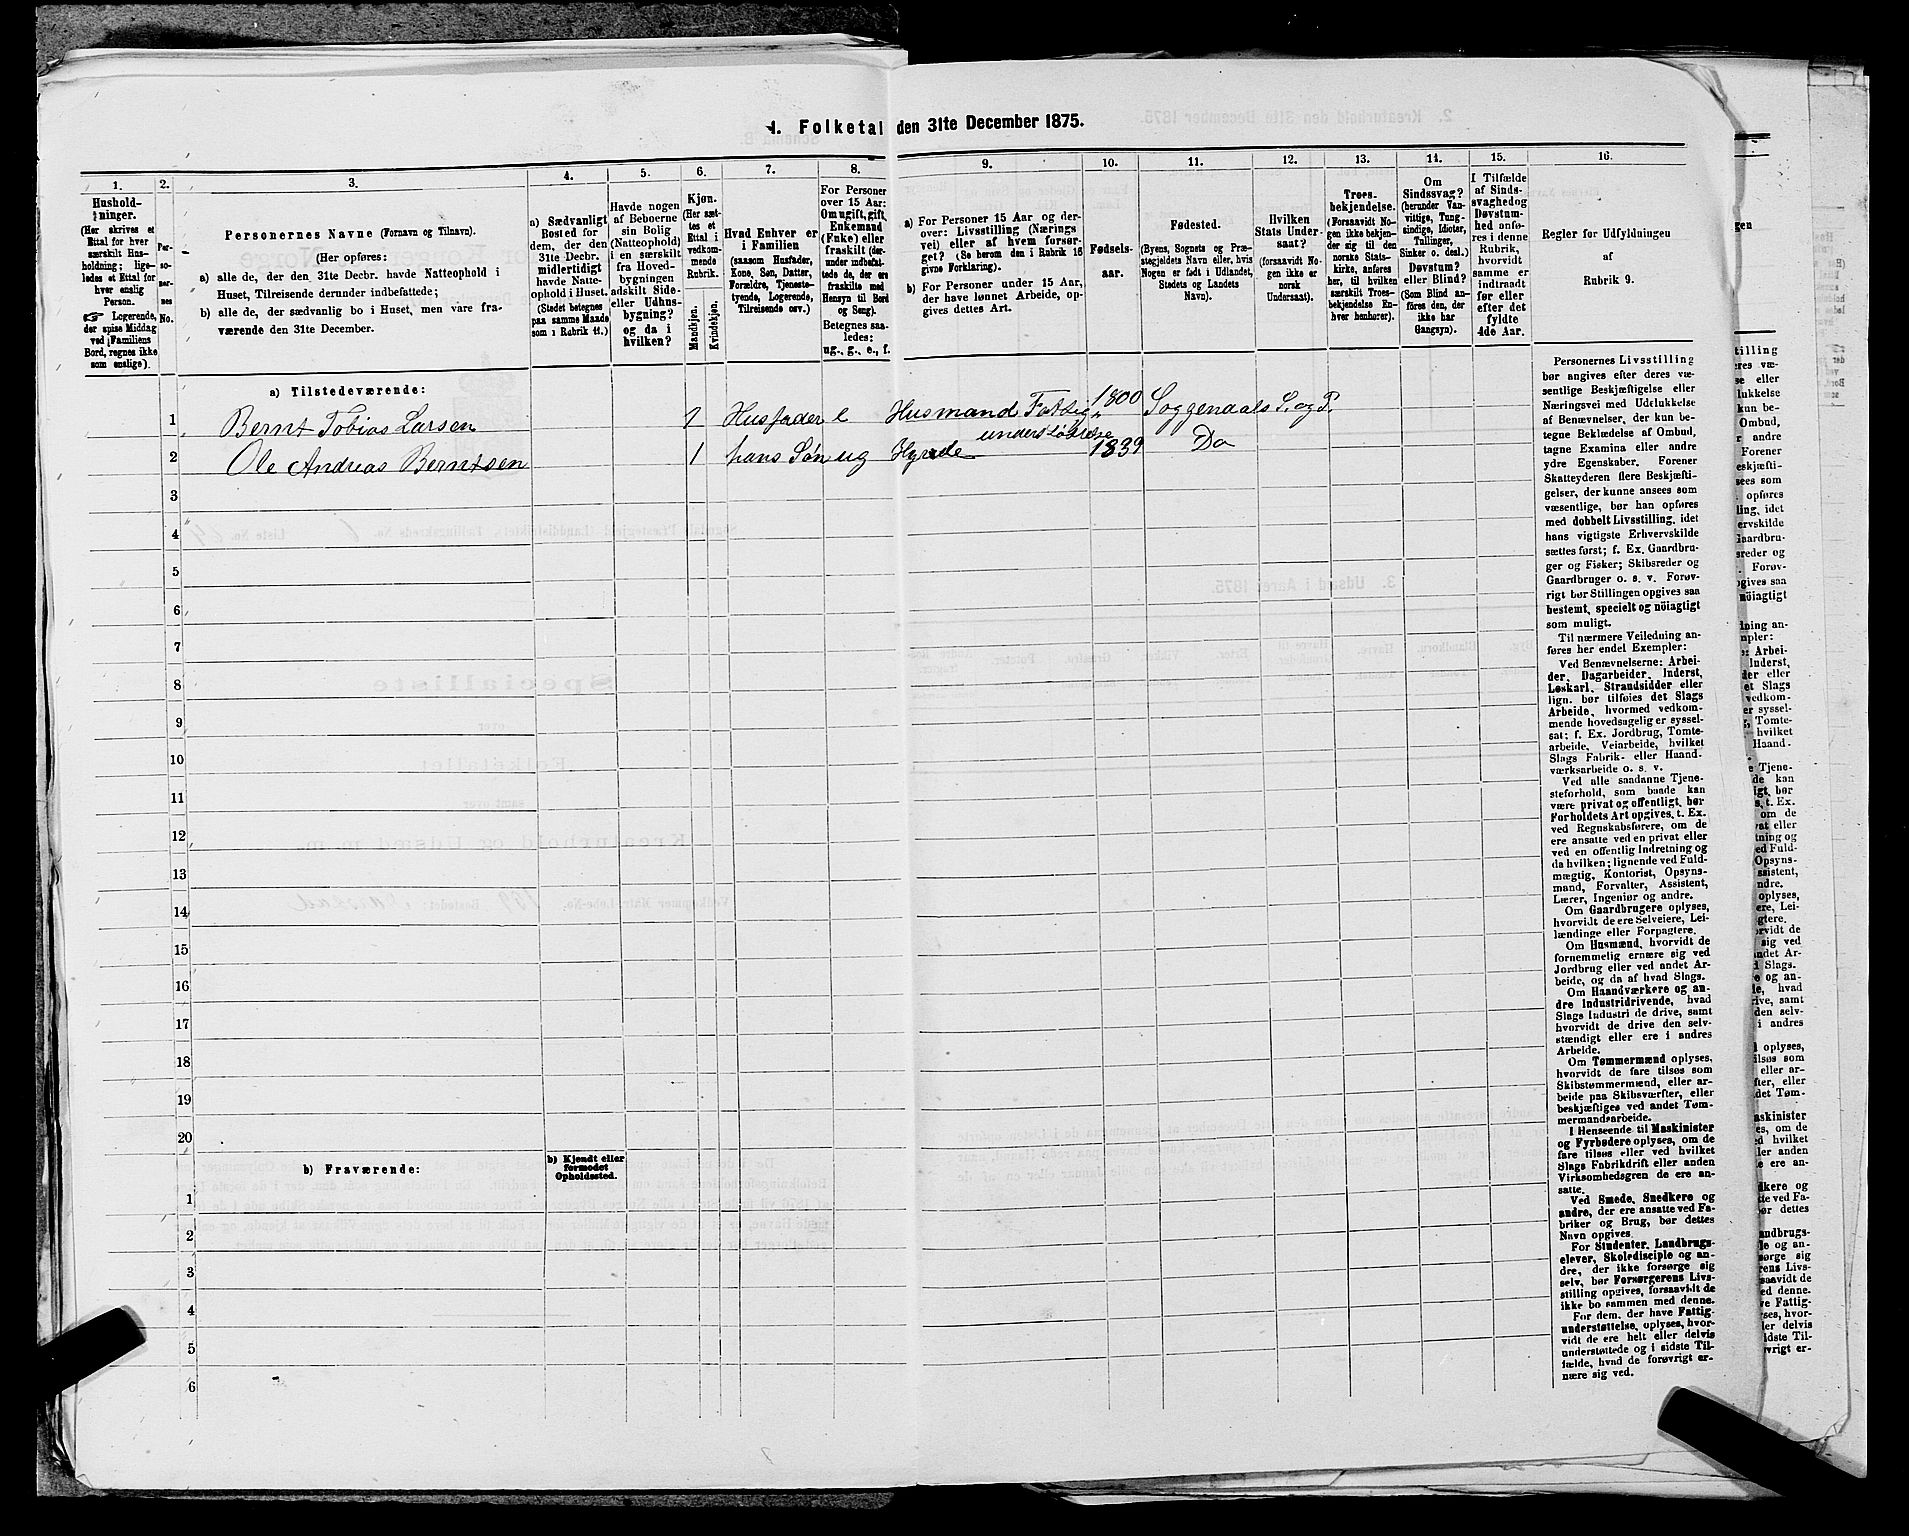 1. Folketal den 31te December 1875.
1.
Hushold-
ninger.
(Her skrives et
Ettal for hver
særskilt Hus-
holdning; lige-
ledes et Ettal for
hver enslig
Person.
☞ Logerende,
der spise Middag
ved Familiens
Bord, regnes ikke
som enslige).
2.
Per-
so-
ner-
nes
No.
3.
Personernes Navne (Fornavn og Tilnavn).
(Her opføres:
a) alle de, der den 31te Decbr. havde Natteophold i
Huset, Tilreisende derunder indbefattede;
b) alle de, der sædvanlig bo i Huset, men vare fra-
værende den 31te December.
4.
a) Sædvanligt
Bosted for
dem, der den
31te Decbr.
midlertidigt
havde Natte-
ophold i Huset.
(Stedet betegnes
paa samme Maade
som i Rubrik 11.)
5.
Havde nogen
af Beboerne
sin Bolig
(Natteophold)
i en særskilt
fra Hoved-
bygningen
adskilt Side-
eller Udhus-
bygning?
og da i
hvilken?
6.
Kjøn.
(Her sæt-
tes et
Ettal i
vedkom-
mende
Rubrik.
Mandkjøn.
Kvindekjøn.
7.
Hvad Enhver er
i Familien
(saasom Husfader,
Kone, Søn, Datter,
Forældre, Tjeneste-
tyende, Logerende,
Tilreisende osv.)
8.
For Personer
over 15 Aar:
Om ugift, gift,
Enkemand
(Enke) eller
fraskilt (der-
under indbefat-
tede de, der ere
fraskilte med
Hensyn til Bord
og Seng).
Betegnes saa-
ledes:
ug., g., e., f.
9.
a) For Personer 15 Aar og der-
over: Livsstilling (Nærings
vei) eller af hvem forsør-
get? (Se herom den i Rubrik 16
givne Forklaring).
b) For Personer under 15 Aar,
der have lønnet Arbeide, op-
gives dettes Art.
10.
Fødsels-
aar.
11.
Fødested.
(Byens, Sognets og Præ-
stegjeldets Navn eller, hvis
Nogen er født i Udlandet,
Stedets og Landets
Navn).
12.
Hvilken
Stats Under-
saat?
(forsaavidt No-
gen ikke er
norsk
Undersaat).
13.
Troes-
bekjendelse.
(Forsaavidt No-
gen ikke bekjen-
der sig til den
norske Stats-
kirke, anføres
her, til hvilken
særskilt Troes-
bekjendelse En-
hver henhører).
14.
Om
Sindssvag?
(herunder Van-
vittige, Tung-
sindige, Idioter,
Tullinger,
Sinker o. desl.)
Døvstum?
eller Blind?
(Som Blind an-
føres den, der
ikke har
Gangsyn).
15.
I Tilfælde
af Sinds-
svaghed og
Døvstum-
hed anfø-
res i denne
Rubrik,
hvorvidt
samme er
indtraadt
før eller
efter det
fyldte
4de Aar.
16.
Regler for Udfyldningen
af
Rubrik 9.
a) Tilstedeværende:
1 Bernt Tobias Larsen 1 Husfader e Husmand Fattig- 1800 Soggendals S. og P.
understøttelse
2 Ole Andreas Berntsen 1 hans Søn ug Hyrde 1839 Do
3
4
5
6
7
8
9
10
11
12
13
14
15
16
17
18
19
20
b) Fraværende:
b) Kjendt eller
formodet
Opholdssted.
1
2
3
4
5
6
Personernes Livsstilling
bør angives efter deres væ-
sentlige Beskjæftigelse eller
Næringsvei med Udelukkelse
af Benævnelser, der kun be-
tegne Beklædelse af Ombud,
tagne Examina eller andre
ydre Egenskaber. Forener
Skatteyderen flere Beskjæfti-
gelser, der kunne ansees som
væsentlige, bør han opføres
med dobbelt Livsstilling, idet
hans vigtigste Erhvervskilde
sættes først; f. Ex. Gaardbru-
ger og Fisker; Skibsreder og
Gaardbruger o. s. v. Forøv-
rigt bør Stillingen opgives saa
bestemt, specielt og nöiagtigt
som muligt.
Til nærmere Veiledning an-
føres her endel Exempler:
Ved Benævnelserne: Arbei-
der, Dagarbeider, Inderst,
Løskarl, Strandsidder eller
lign. bør tilføies det Slags
Arbeide, hvormed vedkom-
mende hovedsagelig er syssel-
sat; f. Ex. Jordbrug, Tomte-
arbeide, Veiarbeide, hvilket
Slags Fabrik- eller Haand-
værksarbeide o. s. v.
Ved alle saadanne Tjene-
steforhold, som baade kan
være privat og offentligt, bør
Forholdets Art opgives, t. Ex.
ved Regnskabsførere, om de
ere ansatte ved en privat eller
ved en offentlig Indretning og
da hvilken; lignende ved Fuld-
mægtig, Kontorist, Opsyns-
mand, Forvalter, Assistent,
Lærer, Ingeniør og andre.
Om Gaardbrugere oplyses,
hvorvidt de ere Selveiere, Lei-
lændinge eller Forpagtere.
Om Husmænd, hvorvidt de
fornemmelig ernære sig ved
Jordbrug eller ved andet Ar-
beide, og da af hvad Slags.
Om Haandværkere og an-
dre Industridrivende, hvad
Slags Industri de drive, samt
hvorvidt de drive den selv-
stændigt eller ere i andres
Arbeide.
Om Tømmermænd oplyses,
hvorvidt de fare tilsøs som
Skibstømmermænd, eller ar-
beide paa Skibsværfter, eller
beskjæftiges ved andet Tøm-
mermandsarbeide.
I Henseende til Maskinister
og Fyrbødere oplyses, om de
fare tilsøs eller ved hvilket
Slags Fabrikdrift eller anden
Virksomhedsgren de ere an-
satte.
Ved Smede, Snedkere og
andre, der ere ansatte ved Fa-
briker og Brug, bør dettes
Navn opgives.
For Studenter, Landbrugs-
elever, Skoledisciple og an-
dre, der ikke forsørge sig
selv, bør Forsørgerens Livs-
stilling opgives, forsaavidt de
ikke bo sammen med denne.
For dem, der have Fattig-
understøttelse, oplyses, hvor-
vidt de ere helt eller delvis
understøttede og i sidste Til-
fælde, hvad de forøvrigt er-
nære sig ved.